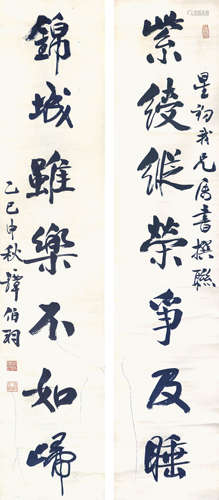 紫綬縱榮爭及睡
星初我兄屬書撰聯
錦城雖樂不如歸
乙巳中秋譚伯羽